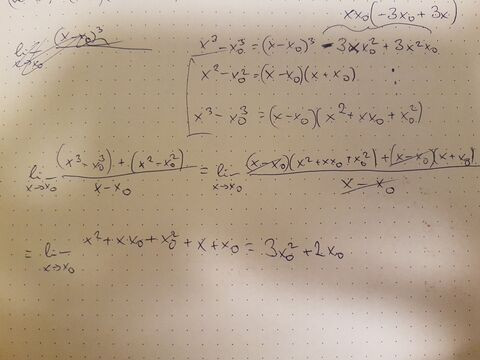 xx₀(-3x₀ + 3x)
lim x→x₀ (x-x₀)³
x³ - x₀³ = (x-x₀)³ - 3xx₀² + 3x²x₀
x² - x₀² = (x-x₀)(x+x₀) ⋮
x³ - x₀³ = (x-x₀)(x² + xx₀ + x₀²)
lim x→x₀ ((x³-x₀³) + (x²-x₀²))/(x-x₀) = lim x→x₀ ((x-x₀)(x²+xx₀+x₀²) + (x-x₀)(x+x₀))/(x-x₀)
= lim x→x₀ x² + xx₀ + x₀² + x + x₀ = 3x₀² + 2x₀